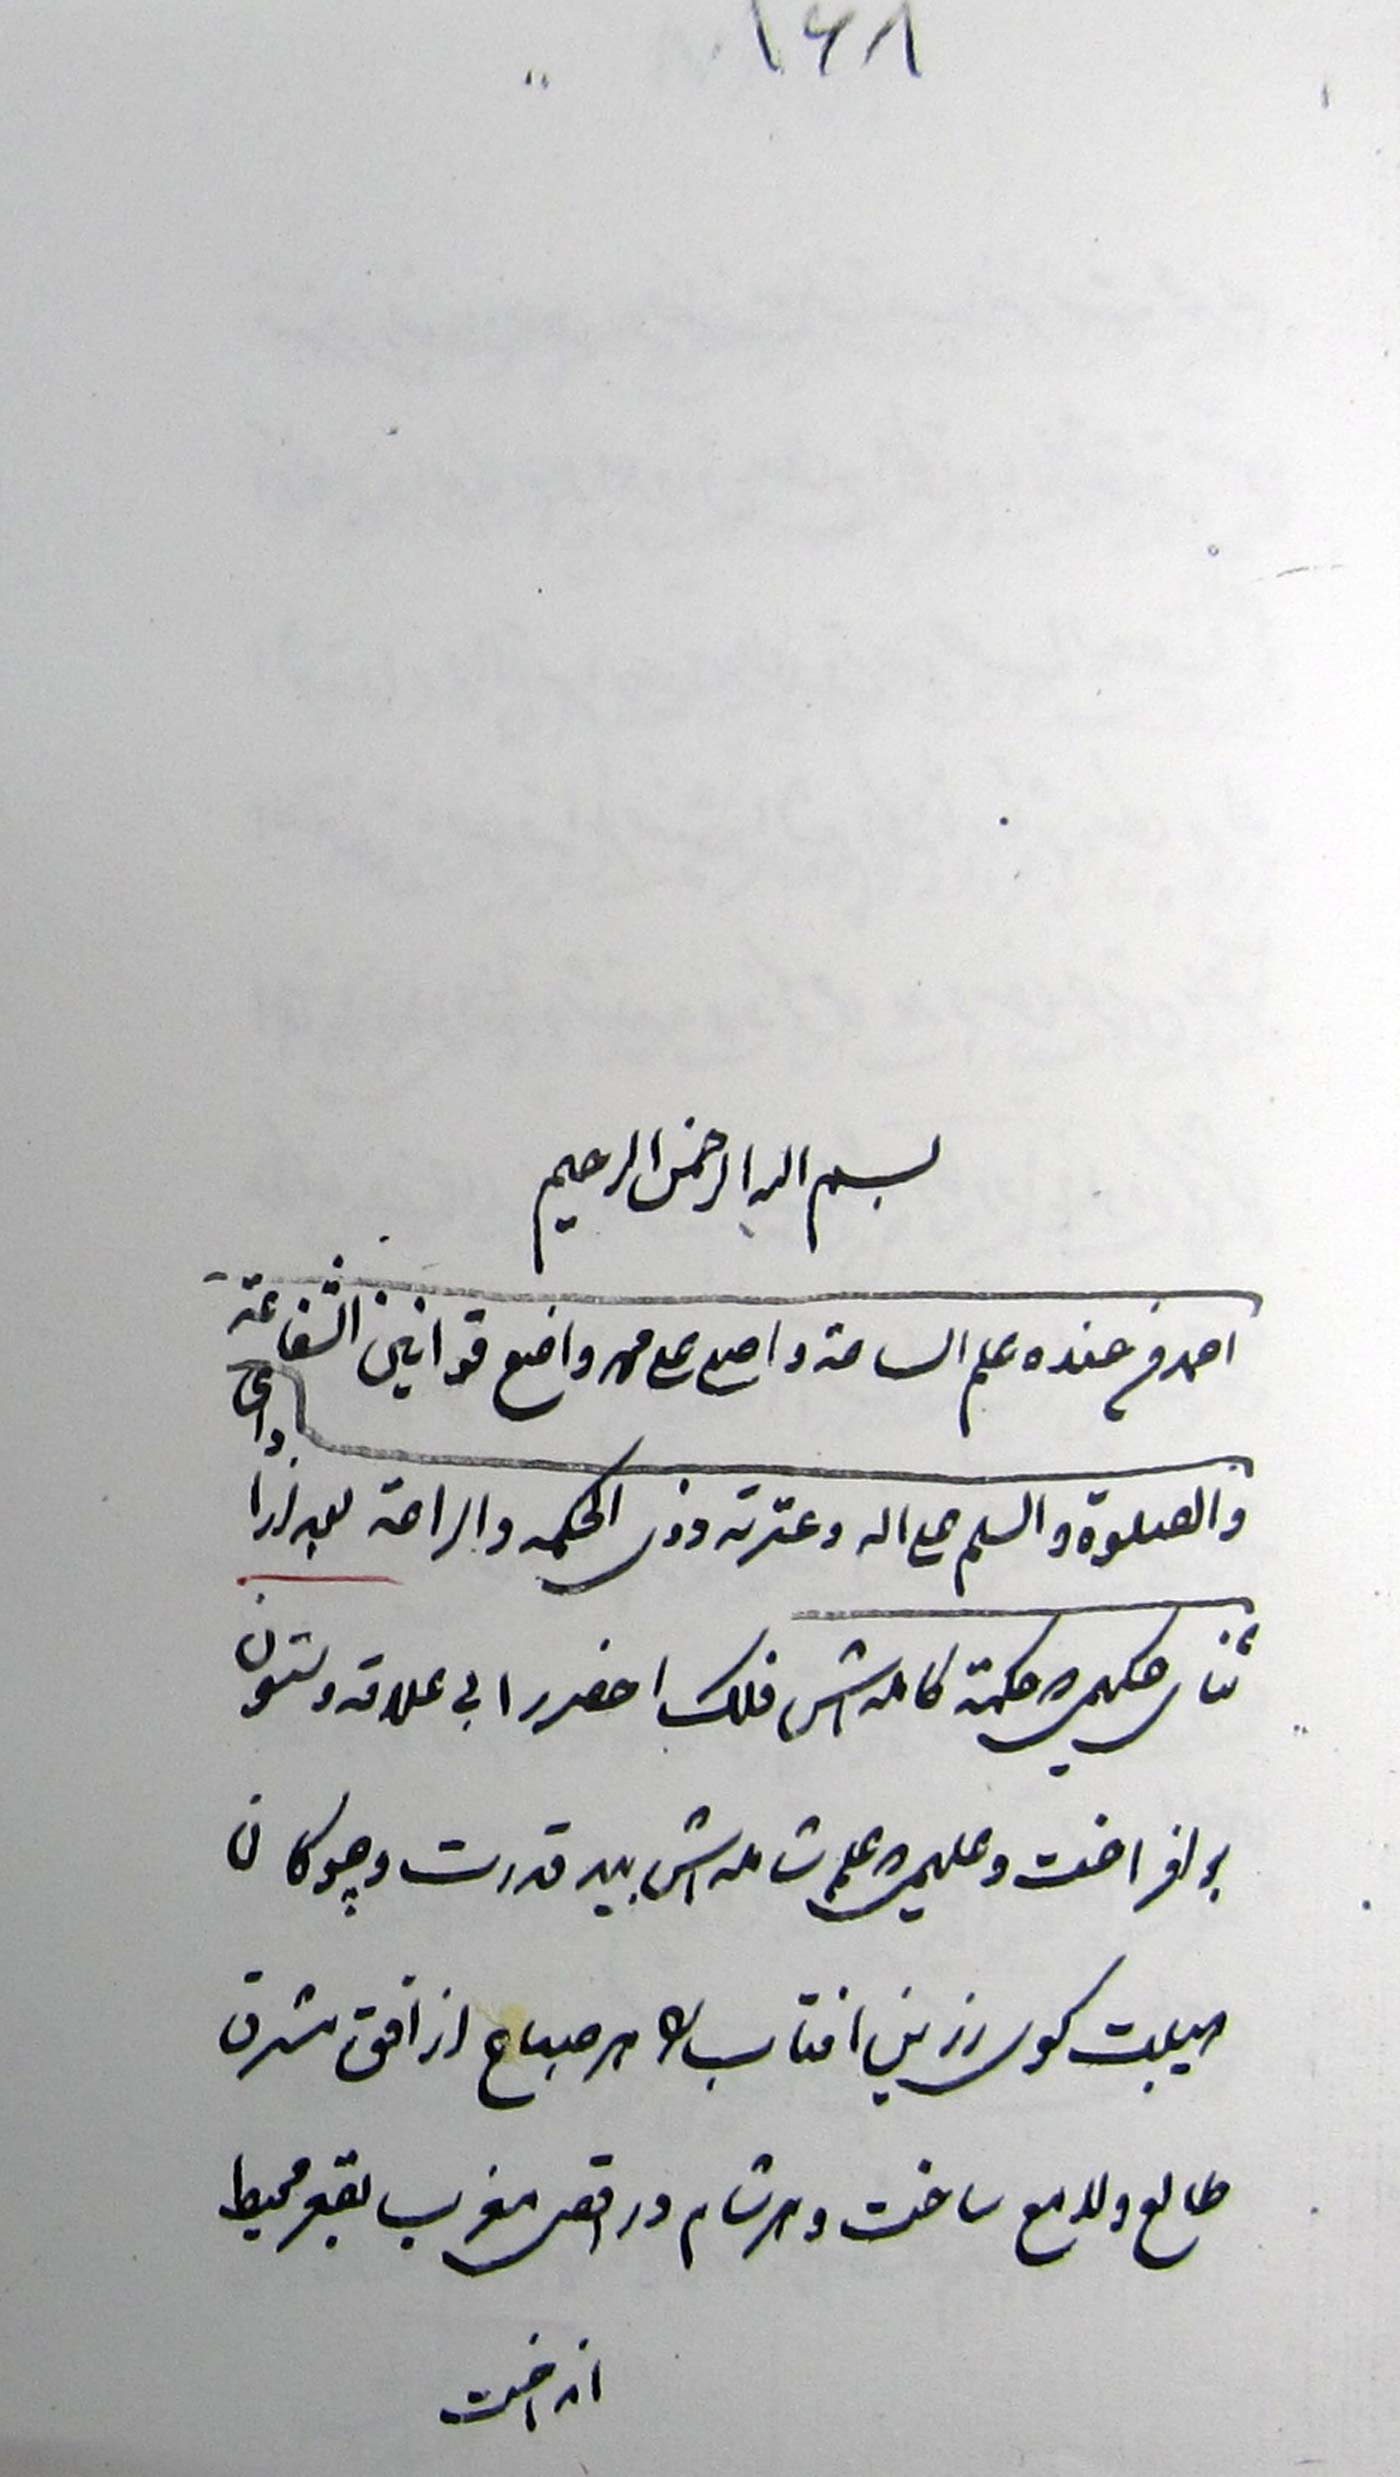 ۱۶۸
بسم الله الرحمن الرحیم
احمد من عنده علم الساعة و اصلی علی من واضع قوانین الشفاعة
والصلوة والسلم علی اله و عترته ذوی الحکمه والبراعة بعد از ادای
ثنای حکیمی که حکمة کامله اش فلک اخضر را بی علاقه وستون
بر افراخت و علیمی که علم شامله اش بید قدرت و چوکان
هیبت کوی زرین افتاب را هر صباح از افق مشرق
طالع ولامع ساخت و هر شام در اقصی مغرب بقعر محیط
انداخت